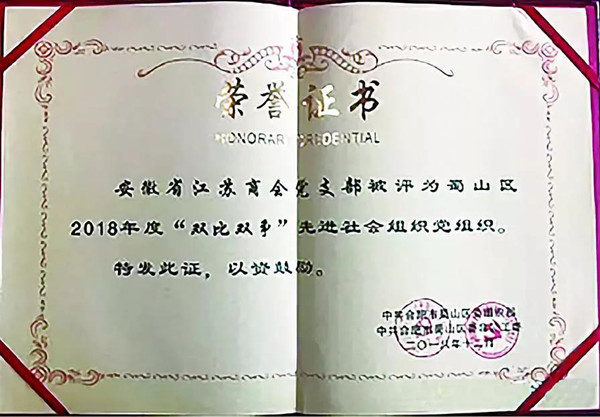 荣誉证书
HONORARY CREDENTIAL
安徽省江苏商会党支部被评为蜀山区
2018年度“双比双争”先进社会组织党组织。
特发此证，以资鼓励。
中共合肥市蜀山区委组织部
中共合肥市蜀山区委
二〇一八年十二月